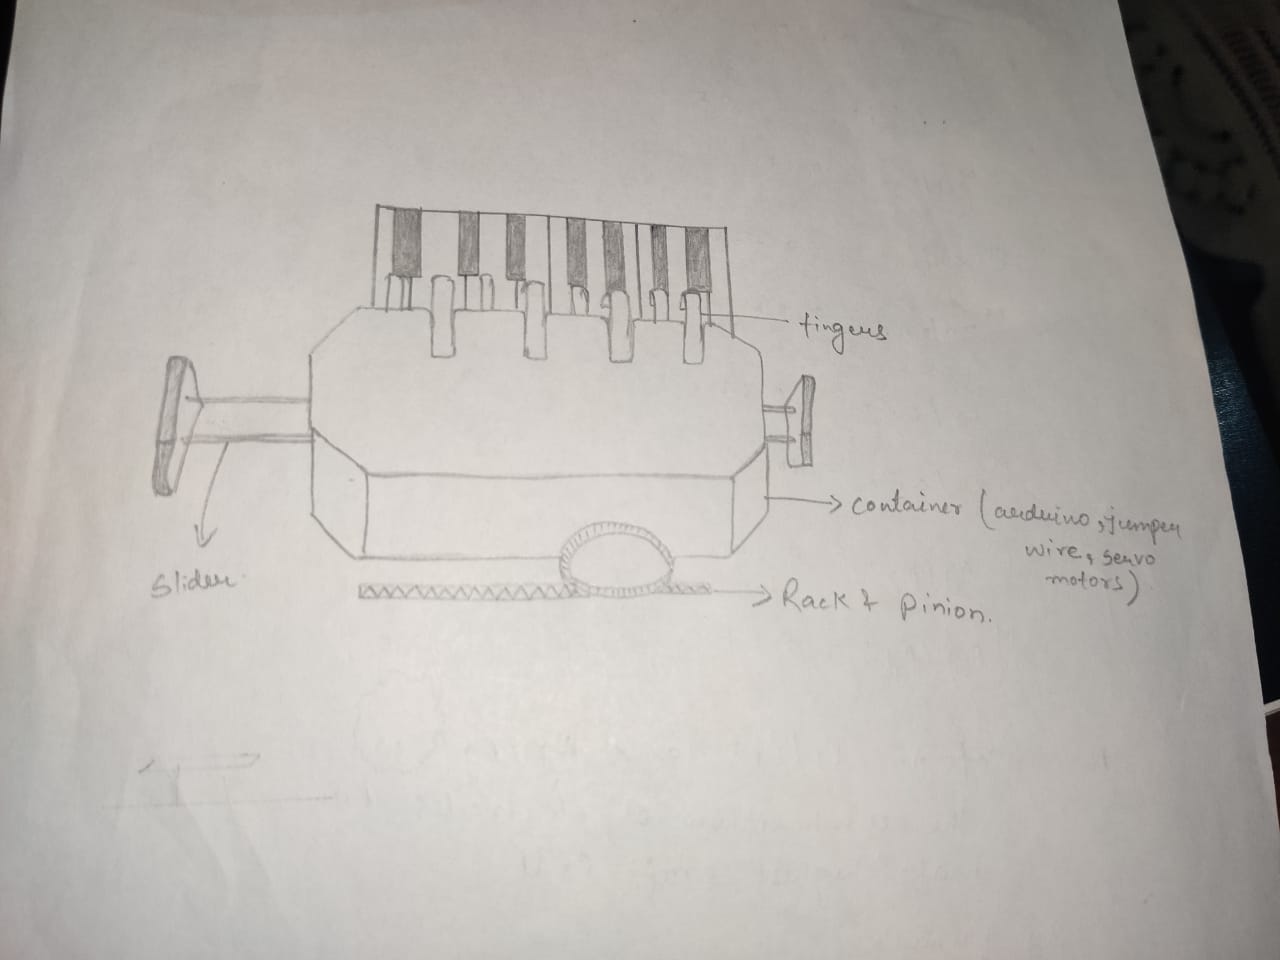 fingers
container (arduino, jumper
wire, servo
motors)
Slider
Rack & pinion.